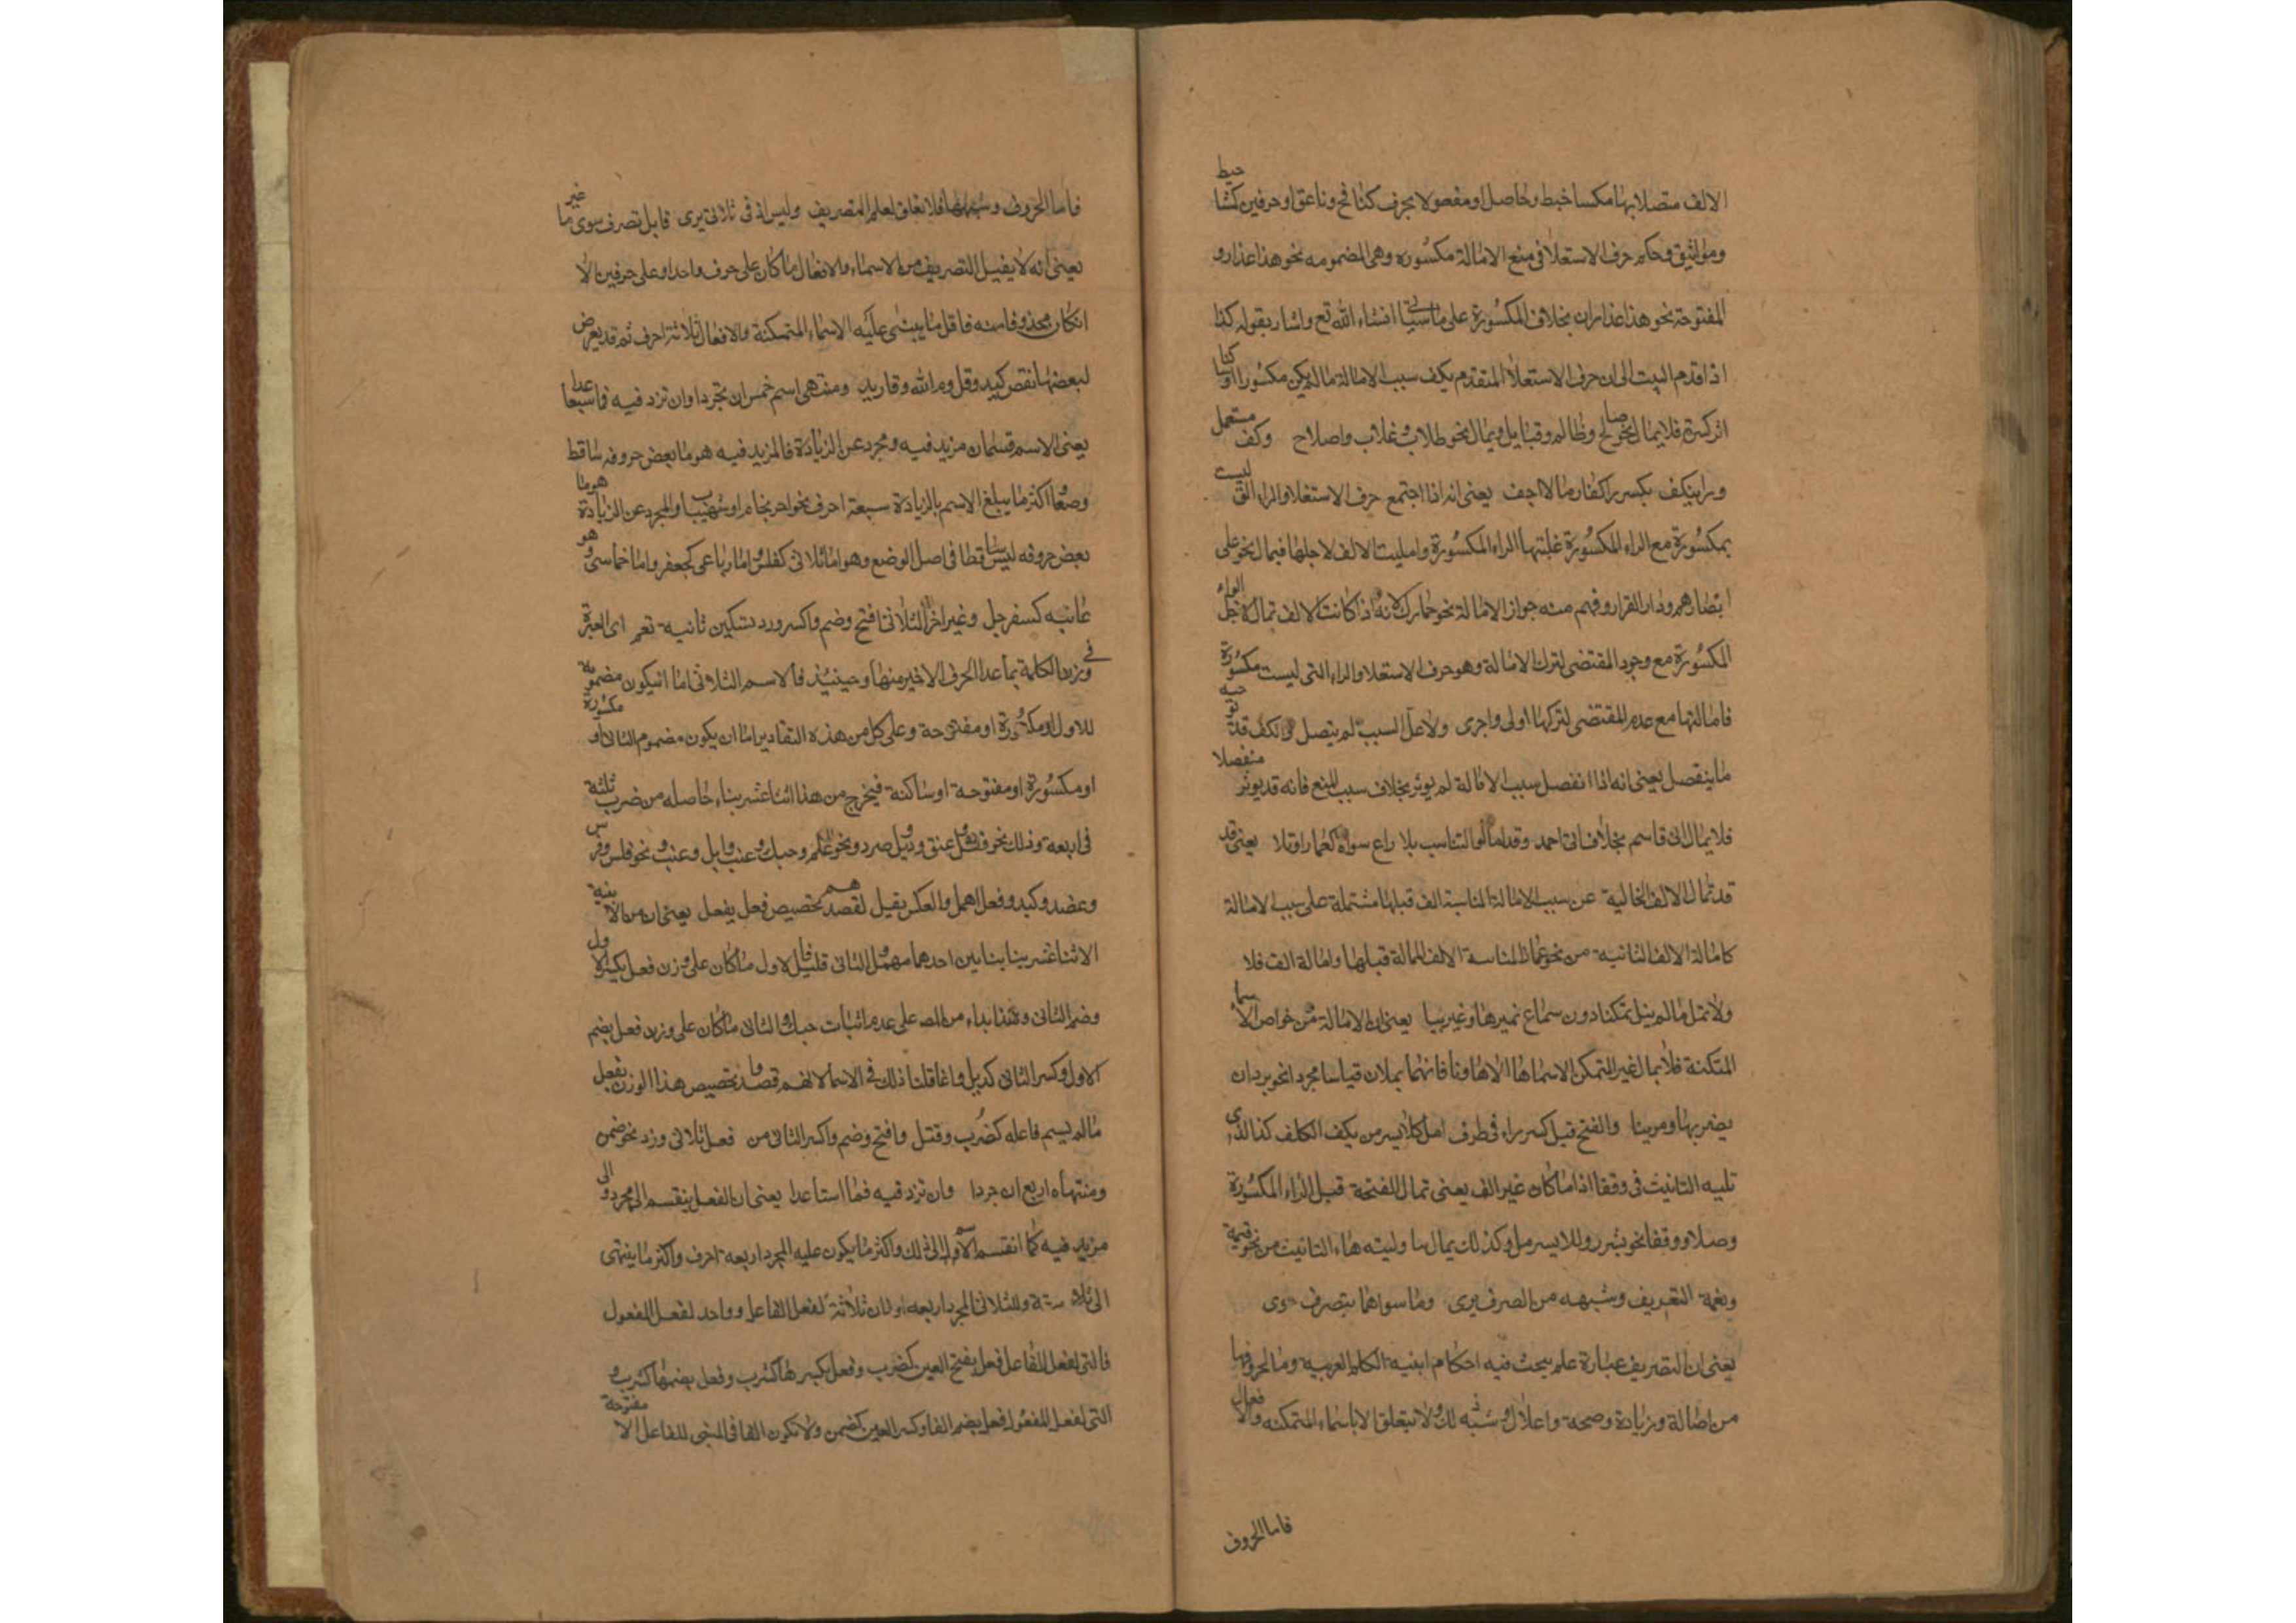 الالف متصلا بها مكساخط وحاصل اومفعولا بحرف كنافخ وناعق اوحرفين كمشا
ومواثيق وحكم حرف الاستعلا في منع الامالة مكسوره وهي المضمومه نحو هذا عذار و
المفتوحة نحو هذا عذاران بخلاف المكسورة على ما سياتي انشاء الله تع واشار بقوله كذا
اذا قدم البيت الى ان حرف الاستعلا المتقدم يكف سبب الامالة مالم يكن مكسورا او ساكنا
اثر كسرة فلا يمال نحو صالح وظالم وقبايل ويمال نحو طلاب وغلاب واصلاح وكف مستعل
ورا ينكف بكسر را كغارما لا اجف يعني انه اذا اجتمع حرف الاستعلا والراء التي ليست
بمكسورة مع الراء المكسورة غلبتها الراء المكسورة واميلت الالف لاجلها فيمال نحو على
ابصارهم ودار القرار وفهم منه جواز الامالة نحو حمارك لانه اذا كانت الالف تمال لاجل الراء
المكسورة مع وجود المقتضى لترك الامالة وهو حرف الاستعلا والراء التي ليست مكسورة
فامالتها مع عدم المقتضى لتركها اولى واجرى ولا تمل لسبب لم يتصل والكف قد توجبه
ما ينفصل يعني انه اذا انفصل سبب الامالة لم يوثر بخلاف سبب المنع فانه قد يوثر منفصلا
فلا يمال اتى قاسم بخلاف اتى احمد وقد امالوا لتناسب بلا داع سواه كعمادا وتلا يعني قد
قد تمال الالف الخالية عن سبب الامالة لمناسبة الف قبلها مشتملة على سبب الامالة
كامالة الالف الثانية من نحو عمادا لمناسبة الالف الممالة قبلها وامالة الف فلا
ولا تمل مالم ينل تمكنا دون سماع غيرها وغير نا يعني ان الامالة من خواص الاسما
المتكنة فلا يمال غير المتمكن الا سماعا الا ها ونا فانهما يملان قياسا مجردا نحو يريد ان
يضربها ومر بنا والفتح قبل كسر راء في طرف امل كلايسر مل يكف الكلف كذا الذي
تليه التانيث في وقف اذا ما كان غير الف يعني تمال الفتحة قبل الراء المكسورة
وصلا ووقفا نحو بشرر وللايسر مل وكذلك يمال ما وليته هاء التانيث من نحو قيمة
ونعمة التعريف وشبهه من الصرف يرى وما سواهما بتصرف حرى
يعني ان التصريف عبارة علم يبحث فيه احكام ابنية الكلم العربية وما لحروفها
من اصالة وزيادة وصحة واعلال وشبه ذلك ولا يتعلق الا باسماء المتمكنه والافعال
فاما الحروف
فاما الحروف وشبهها فلا تعلق لعلم التصريف وليس ادنى ثلاثي يرى قابل تصرف سوى ما غير
يعني انه لا يقبل التصريف من الاسماء والافعال ما كان على حرف واحد او على حرفين الا
انكان محذوفا منه فاقل ما يبنى عليه الاسماء المتمكنة والافعال ثلاثة احرف ثم قد يعرض
لبعضها نقص كيد وقل وم الله وق زيد ومنتهى اسم خمس ان تجردا وان تزد فيه فما سبعا عدا
يعني الاسم قسمان مزيد فيه ومجرد عن الزيادة فالمزيد فيه هو ما بعض حروفه ساقط
وضعا اكثر ما يبلغ الاسم بالزيادة سبعة احرف نحو احرنجام او شهيباب والمجرد عن الزيادة هو ما
بعض حروفه ليس ساقطا في اصل الوضع وهو اما ثلاثى كفلس واما رباعى كجعفر واما خماسى وهو
غايته كسفرجل وغير اخر الثلاثى افتح وضم واكسر وزد تسكين ثانيه تعم اى العبرة
في وزن الكلمة بما عدا الحرف الاخير منها وحينئذ فالاسم الثلاثى اما ان يكون مضموم
الاول او مكسورة او مفتوحة وعلى كل من هذه التقادير اما ان يكون مضموم الثانى او
او مكسورة او مفتوحة او ساكنة فيخرج من هذا اثنا عشر بناء حاصله من ضرب ثلثة
في اربعة وذلك نحو قفل وعنق ودئل صرد ونحو علم وحبك وابل وعنب ونحو فلس وفرس
وعضد وكبد وفعل اهمل والعكس يقل لقصدهم تخصيص فعل بفعل يعنى ان من الابنية
الاثنا عشر بنا بنايين احدهما مهمل والثانى قليل فالاول ما كان على وزن فعل بكسر الاول
وضم الثانى وهذا بناء من المص على عدم اثبات حبك والثانى ما كان على وزن فعل بضم
الاول وكسر الثانى كدئل وانما قلنا ذلك في الاسما لانهم قصدوا تخصيص هذا الوزن بفعل
مالم يسم فاعله كضرب وقتل وافتح وضم واكسر الثانى من فعل ثلاثى وزد نحو ضمن
ومنتهاه اربع ان جردا وان تزد فيه فما ستا عدا يعنى ان الفعل ينقسم الى مجرد والى
مزيد فيه كما انقسم الاسم الى ذلك واكثر ما يكون عليه المجرد اربعة احرف واكثر ما ينتهى
الى ستة وللثلاثى المجرد اربعة اوزان ثلاثة لفعل الفاعل وواحد لفعل المفعول
فالتى لفعل الفاعل فعل بفتح العين كضرب وفعل بكسرها كشرب وفعل بضمها كشرف و
التى لفعل المفعول فعل بضم الفا وكسر العين كضمن ولا تكون الفا في المبنى للفاعل الا مفتوحة